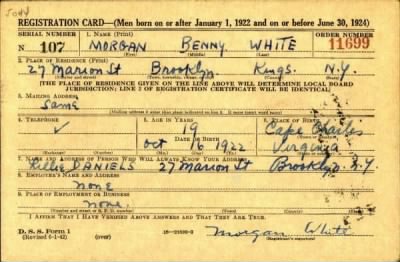 REGISTRATION CARD—(Men born on or after January 1, 1922 and on or before June 30, 1924)
SERIAL NUMBER 1. NAME (Print) ORDER NUMBER
N 107 MORGAN BENNY WHITE 11699
2. PLACE OF RESIDENCE (Print)
27 Marion St Brooklyn Kings. N.Y.
[THE PLACE OF RESIDENCE GIVEN ON THE LINE ABOVE WILL DETERMINE LOCAL BOARD
JURISDICTION; LINE 2 OF REGISTRATION CERTIFICATE WILL BE IDENTICAL]
3. MAILING ADDRESS
Same
4. TELEPHONE 5. AGE IN YEARS 6. PLACE OF BIRTH
19 Cape Charles
DATE OF BIRTH
Oct 16 1922 Virginia
7. NAME AND ADDRESS OF PERSON WHO WILL ALWAYS KNOW YOUR ADDRESS
DANIELS 27 Marion St Brooklyn N.Y
8. EMPLOYER'S NAME AND ADDRESS
None
9. PLACE OF EMPLOYMENT OR BUSINESS
None.
I AFFIRM THAT I HAVE VERIFIED ABOVE ANSWERS AND THAT THEY ARE TRUE.
D. S. S. Form 1
(Revised 6-1-42) (over) Morgan White
(Registrant's signature)